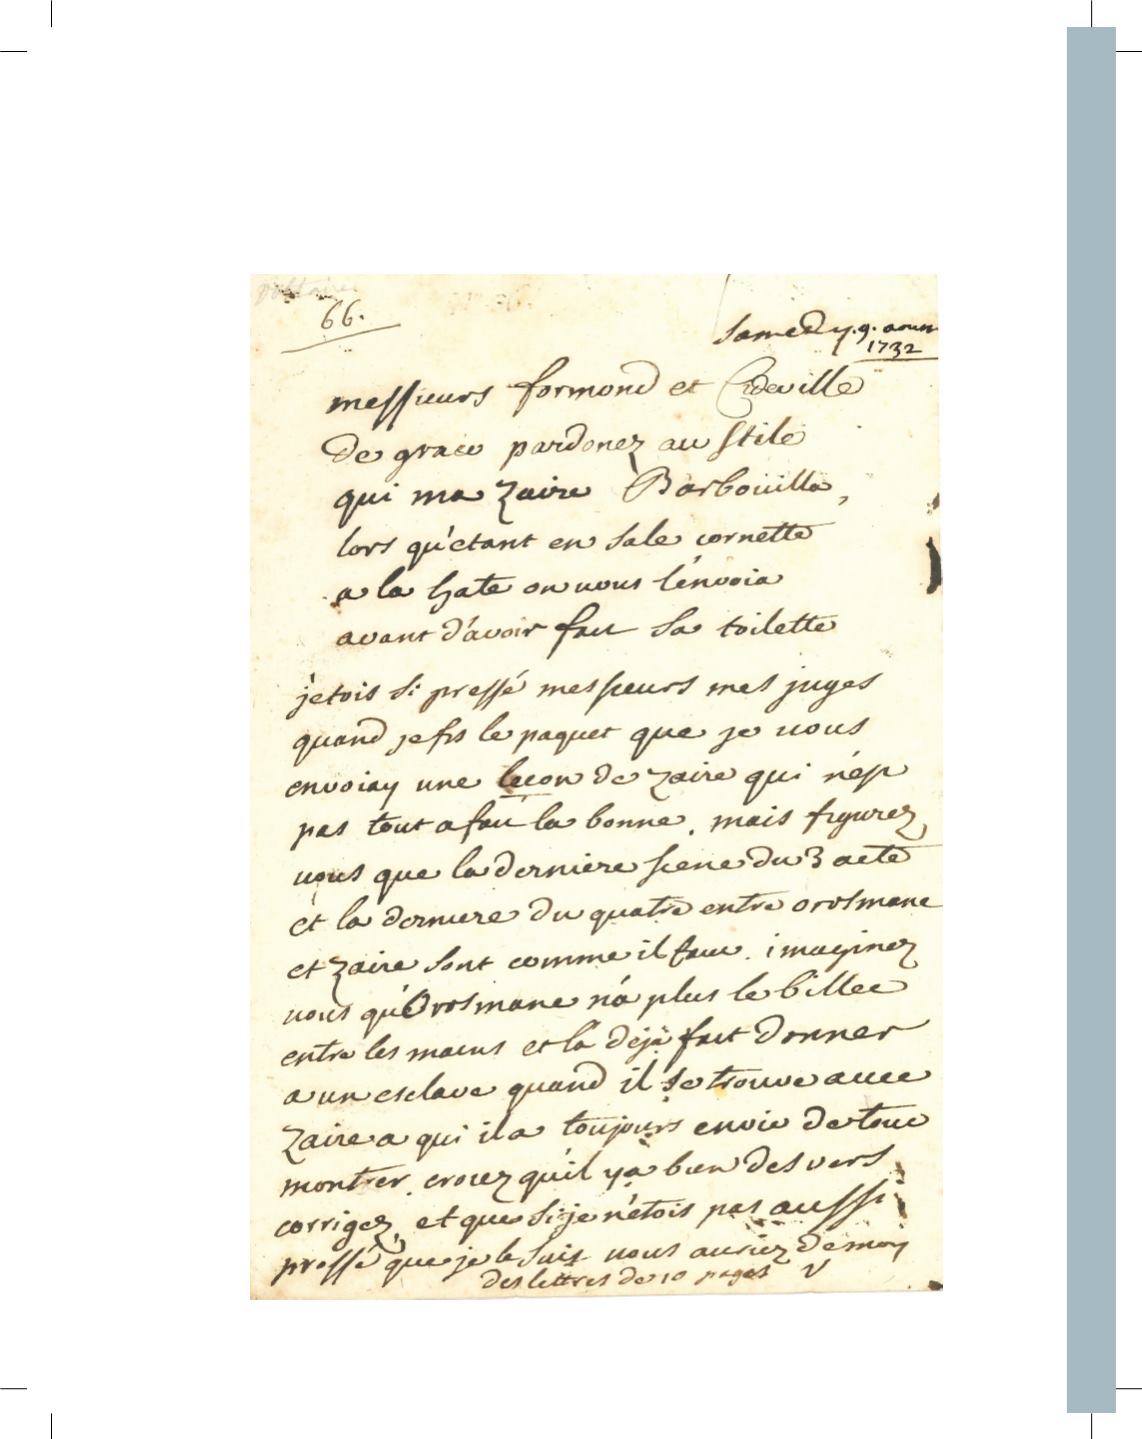 voltaire
66.
Samedy. 9. aoust
1732
messieurs formond et Cideville
de grace pardonez au stile
qui ma zaire Barbouilla,
lors qu'etant en sale cornette
a la hate on vous l'envoia
avant d'avoir fait sa toilette
j'etois si pressé messieurs mes juges
quand je fis le paquet que je vous
envoiay une lecon de zaire qui n'est
pas tout a fait la bonne. mais figurez
vous que la derniere scene du 3 acte
et la derniere du quatre entre orosmane
et zaire sont comme il faut. imaginez
vous qu'Orosmane n'a plus le billet
entre les mains et l'a déjà fait donner
a un esclave quand il se trouve avec
zaire a qui il a toujours envie de tout
montrer. croiez qu'il y a bien des vers
corrigez, et que si je n'étois pas aussi
pressé que je le suis vous auriez de moy
des lettres de 10 pages V